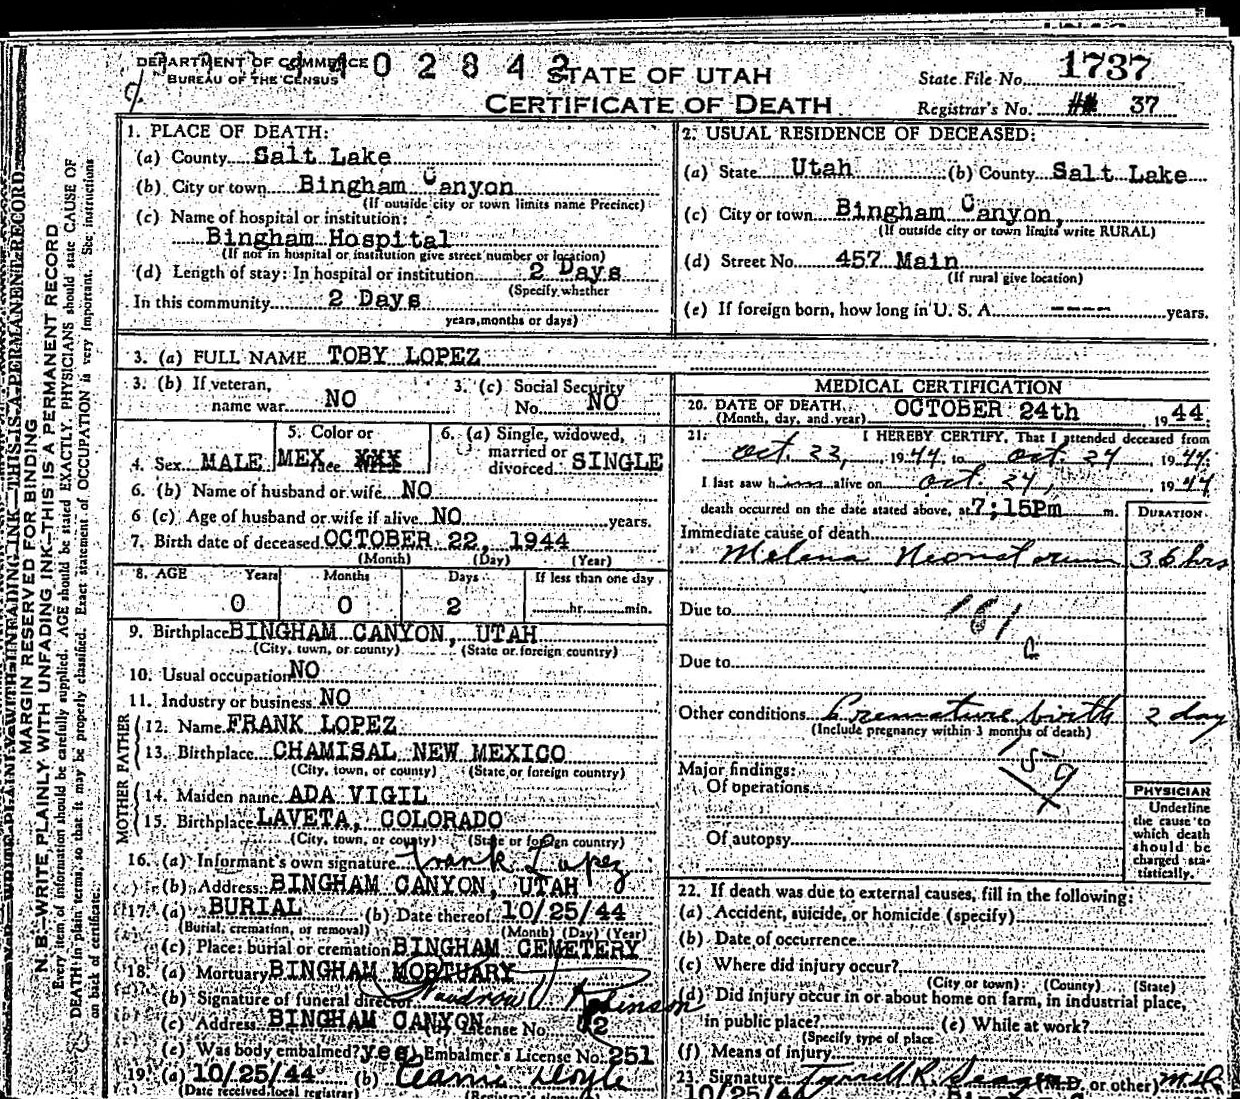 DEPARTMENT OF COMMERCE
BUREAU OF THE CENSUS
402842
STATE OF UTAH
CERTIFICATE OF DEATH
State File No. 1737
Registrar's No. 37
MARGIN RESERVED FOR BINDING
N. B.—WRITE PLAINLY WITH UNFADING INK—THIS IS A PERMANENT RECORD
Every item of information should be carefully supplied. AGE should be stated EXACTLY. PHYSICIANS should state CAUSE OF
DEATH in plain terms, so that it may be properly classified. Exact statement of OCCUPATION is very important. See instructions
on back of certificate.
1. PLACE OF DEATH:
(a) County Salt Lake
(b) City or town Bingham Canyon
(If outside city or town limits name Precinct)
(c) Name of hospital or institution:
Bingham Hospital
(If not in hospital or institution give street number or location)
(d) Length of stay: In hospital or institution 2 Days
(Specify whether
In this community 2 Days
years, months or days)
2. USUAL RESIDENCE OF DECEASED:
(a) State Utah (b) County Salt Lake
(c) City or town Bingham Canyon,
(If outside city or town limits write RURAL)
(d) Street No. 457 Main
(If rural give location)
(e) If foreign born, how long in U. S. A. ---- years.
3. (a) FULL NAME TOBY LOPEZ
3. (b) If veteran,
name war NO
3. (c) Social Security
No. NO
4. Sex MALE
5. Color or
race MEX XXX
6. (a) Single, widowed,
married or
divorced SINGLE
6. (b) Name of husband or wife NO
6 (c) Age of husband or wife if alive NO years.
7. Birth date of deceased OCTOBER 22, 1944
(Month) (Day) (Year)
8. AGE Years Months Days If less than one day
0 0 2 hr. min.
9. Birthplace BINGHAM CANYON, UTAH
(City, town, or county) (State or foreign country)
10. Usual occupation NO
11. Industry or business NO
FATHER
12. Name FRANK LOPEZ
13. Birthplace CHAMISAL NEW MEXICO
(City, town, or county) (State or foreign country)
MOTHER
14. Maiden name ADA VIGIL
15. Birthplace LAVETA, COLORADO
(City, town, or county) (State or foreign country)
16. (a) Informant's own signature Frank Lopez
(b) Address BINGHAM CANYON, UTAH
17. (a) BURIAL (b) Date thereof 10/25/44
(Burial, cremation, or removal) (Month) (Day) (Year)
(c) Place: burial or cremation BINGHAM CEMETERY
18. (a) Mortuary BINGHAM MORTUARY
(b) Signature of funeral director Robinson
(c) Address BINGHAM CANYON License No.
(e) Was body embalmed? yes Embalmer's License No. 251
19. (a) 10/25/44 (b) Doyle
(Date received local registrar) (Registrar's
MEDICAL CERTIFICATION
20. DATE OF DEATH OCTOBER 24th 1944
(Month, day, and year)
21. I HEREBY CERTIFY, That I attended deceased from
Oct. 22, 1944, to Oct. 24 1944.
I last saw him alive on Oct. 24, 1944
death occurred on the date stated above, at 7;15Pm m.
DURATION
Immediate cause of death
Melena Neonatorum 36 hrs
Due to 161
Due to
Other conditions Premature birth 2 day
(Include pregnancy within 3 months of death)
159
Major findings:
Of operations
Of autopsy
PHYSICIAN
Underline
the cause to
which death
should be
charged sta-
tistically.
22. If death was due to external causes, fill in the following:
(a) Accident, suicide, or homicide (specify)
(b) Date of occurrence
(c) Where did injury occur?
(City or town) (County) (State)
(d) Did injury occur in or about home on farm, in industrial place,
in public place? (e) While at work?
(Specify type of place
(f) Means of injury
23. Signature Tyrrell R. Seager (M.D. or other) M.D.
10/25/44